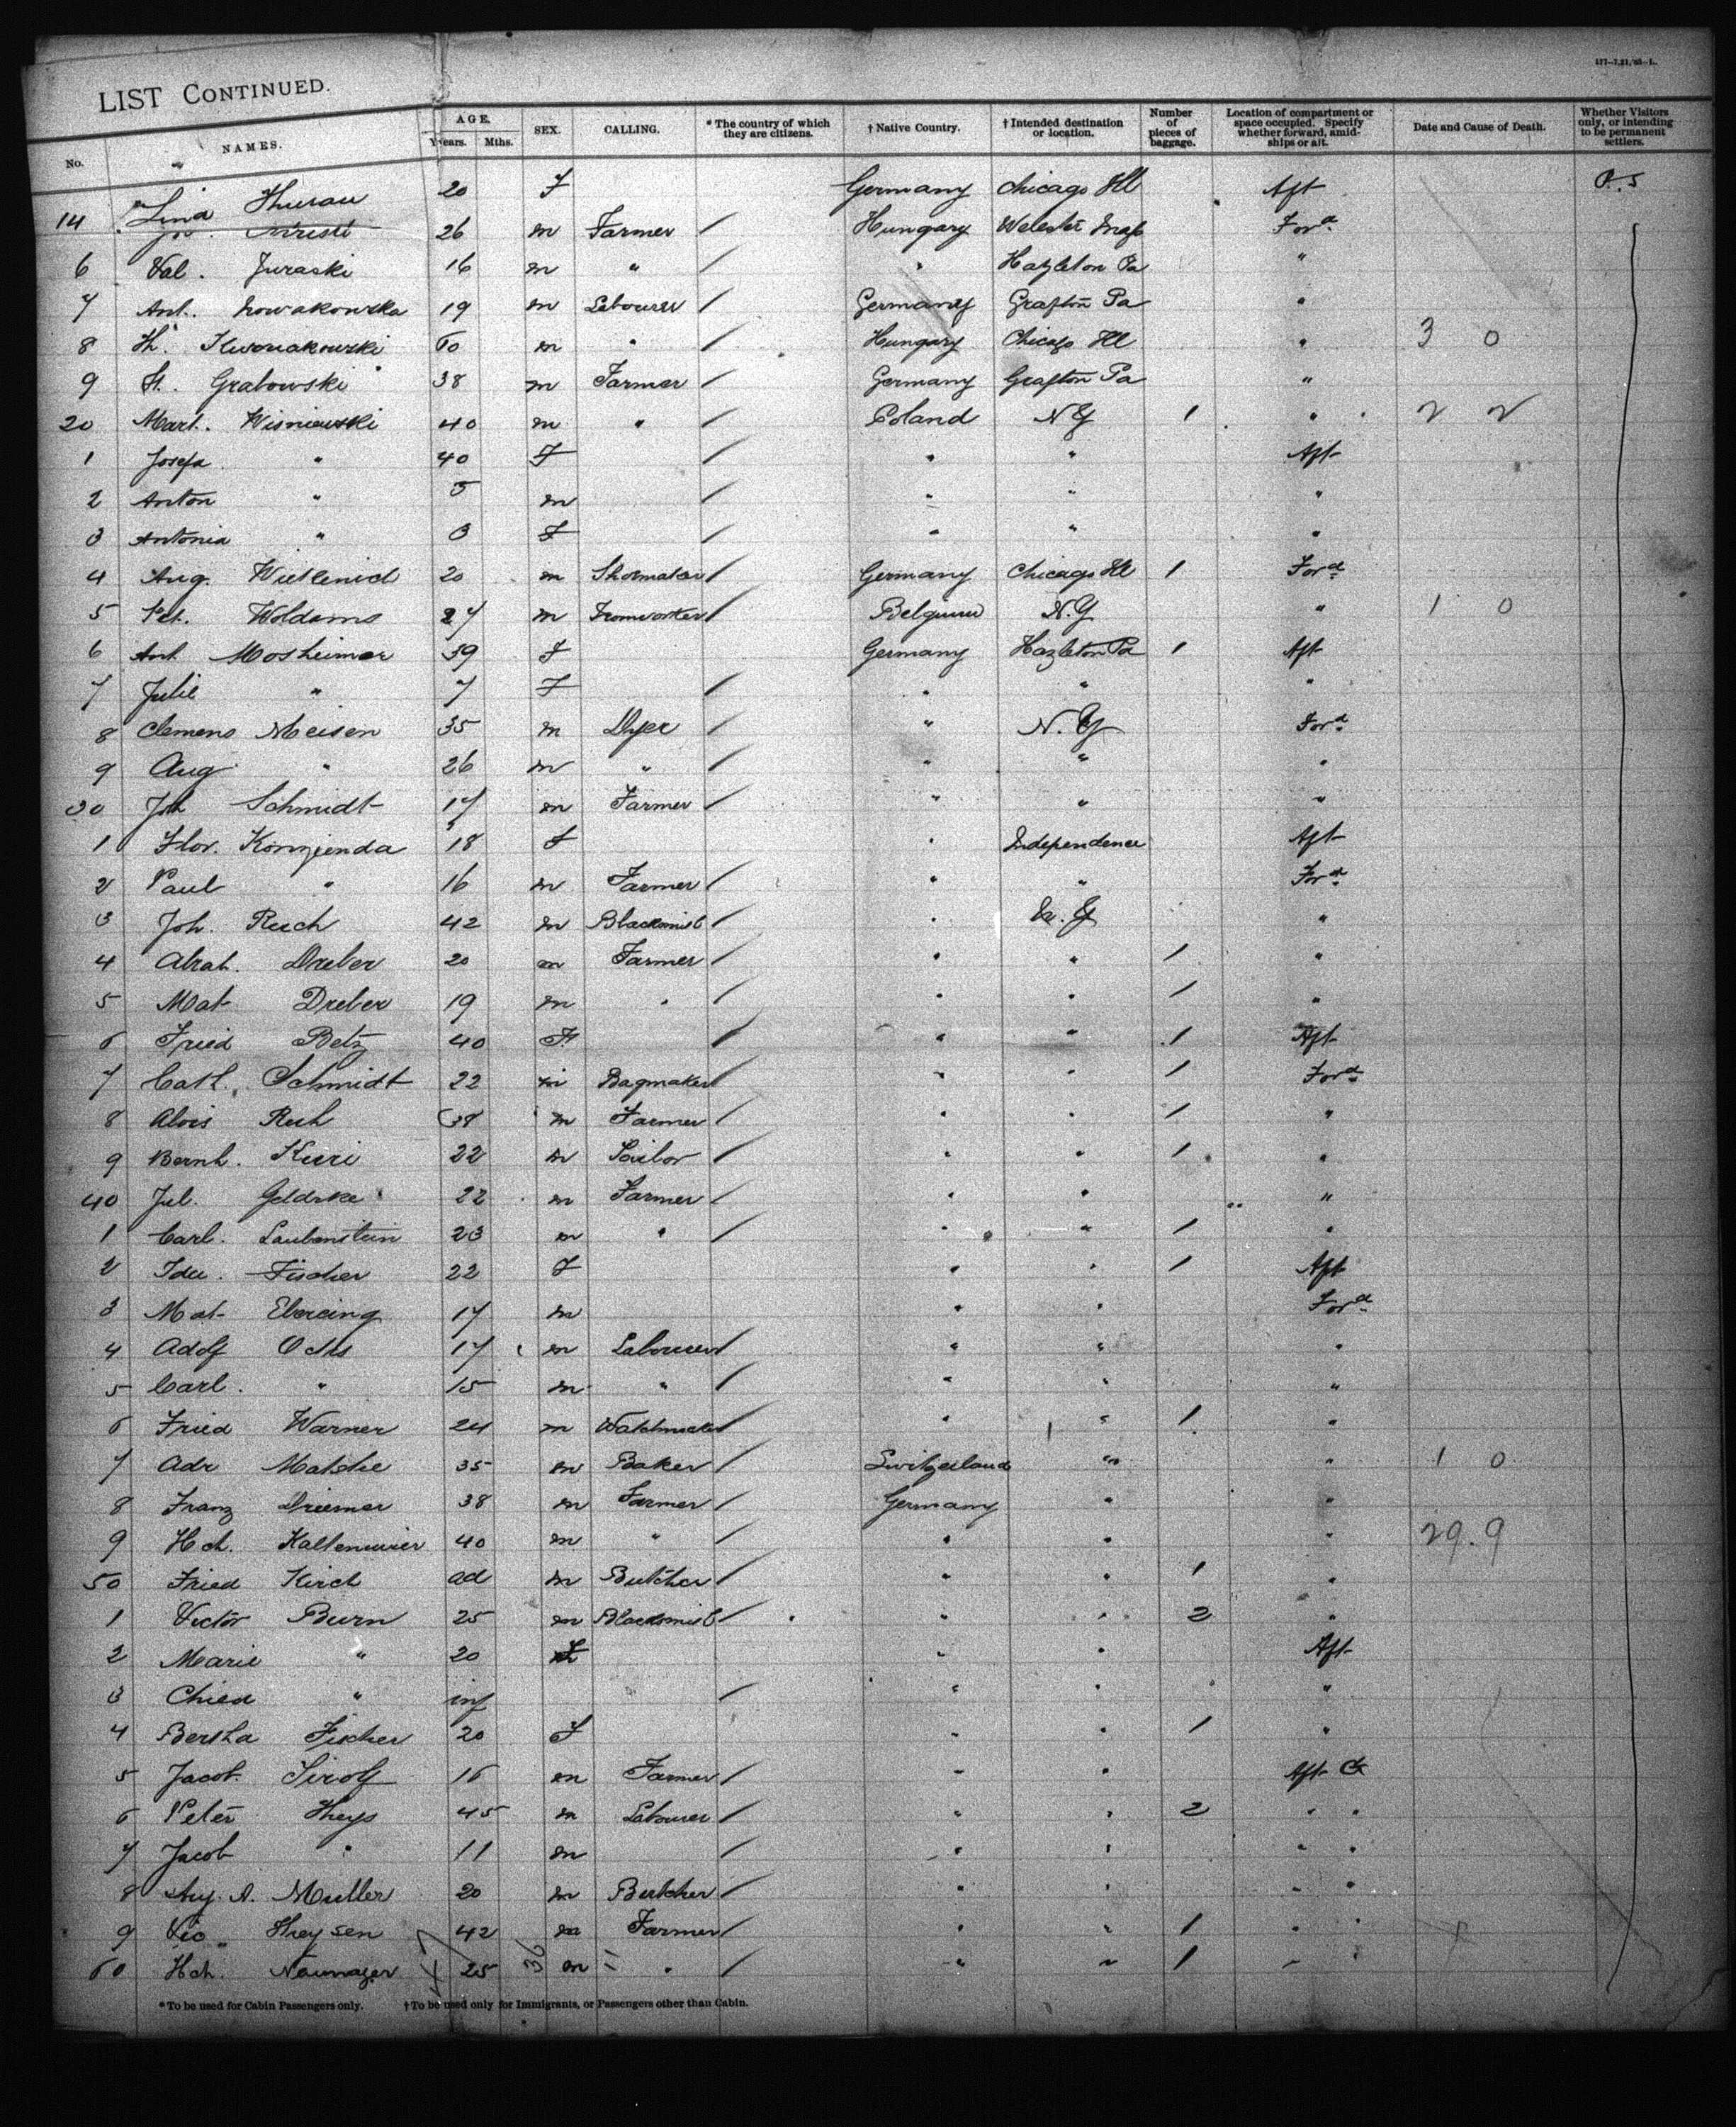 LIST CONTINUED.
No. NAMES. AGE. Years. Mths. SEX. CALLING. * The country of which they are citizens. † Native Country. † Intended destination or location. Number of pieces of baggage. Location of compartment or space occupied. Specify whether forward, amidships or aft. Date and Cause of Death. Whether Visitors only, or intending to be permanent settlers.
14 Lina Thurau 20 F Germany Chicago Ill Aft P.S
26 m Farmer / Hungary Ford
6 Val. Juraski 16 m " / " Hazleton Pa "
7 Ant. Nowakowska 19 m Labourer / Germany Grafton Pa "
8 60 m " / Hungary Chicago Ill " 3 0
9 St. Grabowski 38 m Farmer / Germany Grafton Pa "
20 Mart. Wisniewski 40 m " / Poland NY 1 " 2 2
1 Josefa " 40 F / " " Aft
2 Anton " 5 m / " " "
3 Antonia " 3 F / " " "
4 Aug. 20 m Shoemaker / Germany Chicago Ill 1 Ford
5 Pet. Woldams 27 m Ironworker / Belgium N.Y " 1 0
6 Ant. Mosheimer 39 F Germany Hazleton Pa 1 Aft
7 Julie " 7 F / " " "
8 Clemens Meisen 35 m Dyer / " N.Y Ford
9 Aug " 26 m " / " " "
30 Joh Schmidt 17 m Farmer / " " "
1 Flor. Konzienda 18 F " Independence Aft
2 Paul " 16 m Farmer / " " Ford
3 Joh. Ruch 42 m Blacksmith / " N.Y "
4 Abrah. Dreber 20 m Farmer / " " 1 "
5 Mat Dreber 19 m " / " " 1 "
6 Fried Betz 40 F / " " 1 Aft
7 Cath. Schmidt 22 m Bagmaker / " " 1 Ford
8 Alois Ruh 38 m Farmer / " " 1 "
9 Bernh. Kuri 22 m / " " 1 "
40 Jul. Geldrke 22 m Farmer / " " "
1 Carl. Laubenstein 23 m " / " " 1 "
2 Ida. Fischer 22 F " " 1 Aft
3 Mat Ebercing 17 m " " Ford
4 Adolf Ochs 17 m Labourer / " " "
5 Carl. " 15 m " / " " "
6 Fried Warner 24 m Watchmaker / " " 1 "
7 Adr Matshe 35 m Baker / Switzerland " " 1 0
8 Franz Driemer 38 m Farmer / Germany " "
9 Hch. Kaltenmeier 40 m " / " " " 29.9
50 Fried Kirch ad m Butcher / " " 1 "
1 Victor Burn 25 m Blacksmith / " " 2 "
2 Marie " 20 F " " Aft
3 Child " inf / " " "
4 Bertha Fischer 20 F " " 1 "
5 Jacob. Sirolf 16 m Farmer / " " Aft
6 Peter Theys 45 m Labourer / " " 2 " "
7 Jacob " 11 m / " " " "
8 Aug. A. Muller 20 m Butcher / " " " "
9 Vic. Theysen 42 m Farmer / " " 1 " "
60 Hch. Neumager 25 36 m " / " " 1 " "
* To be used for Cabin Passengers only. † To be used only for Immigrants, or Passengers other than Cabin.